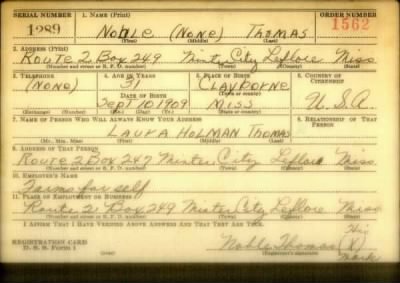 SERIAL NUMBER 1. NAME (Print) ORDER NUMBER
1289 Noble (None) Thomas 1562
(First) (Middle) (Last)
2. ADDRESS (Print)
Route 2 Box 249 Minter City Leflore Miss
(Number and street or R. F. D. number) (Town) (County) (State)
3. TELEPHONE 4. AGE IN YEARS 5. PLACE OF BIRTH 6. COUNTRY OF CITIZENSHIP
(None) 31 Clayborne
DATE OF BIRTH (Town or county)
Sept 10 1909 Miss U.S.A.
(Exchange) (Number) (Mo.) (Day) (Yr.) (State or country)
7. NAME OF PERSON WHO WILL ALWAYS KNOW YOUR ADDRESS 8. RELATIONSHIP OF THAT PERSON
Laura Holman Thomas
(Mr., Mrs., Miss) (First) (Middle) (Last)
9. ADDRESS OF THAT PERSON
Route 2 Box 249 Minter City Leflore Miss.
(Number and street or R. F. D. number) (Town) (County) (State)
10. EMPLOYER'S NAME
Farms for self
11. PLACE OF EMPLOYMENT OR BUSINESS
Route 2 Box 249 Minter City Leflore Miss
(Number and street or R. F. D. number) (Town) (County) (State)
I AFFIRM THAT I HAVE VERIFIED ABOVE ANSWERS AND THAT THEY ARE TRUE.
His
REGISTRATION CARD Noble Thomas (X)
D. S. S. Form 1 (Registrant's signature) mark